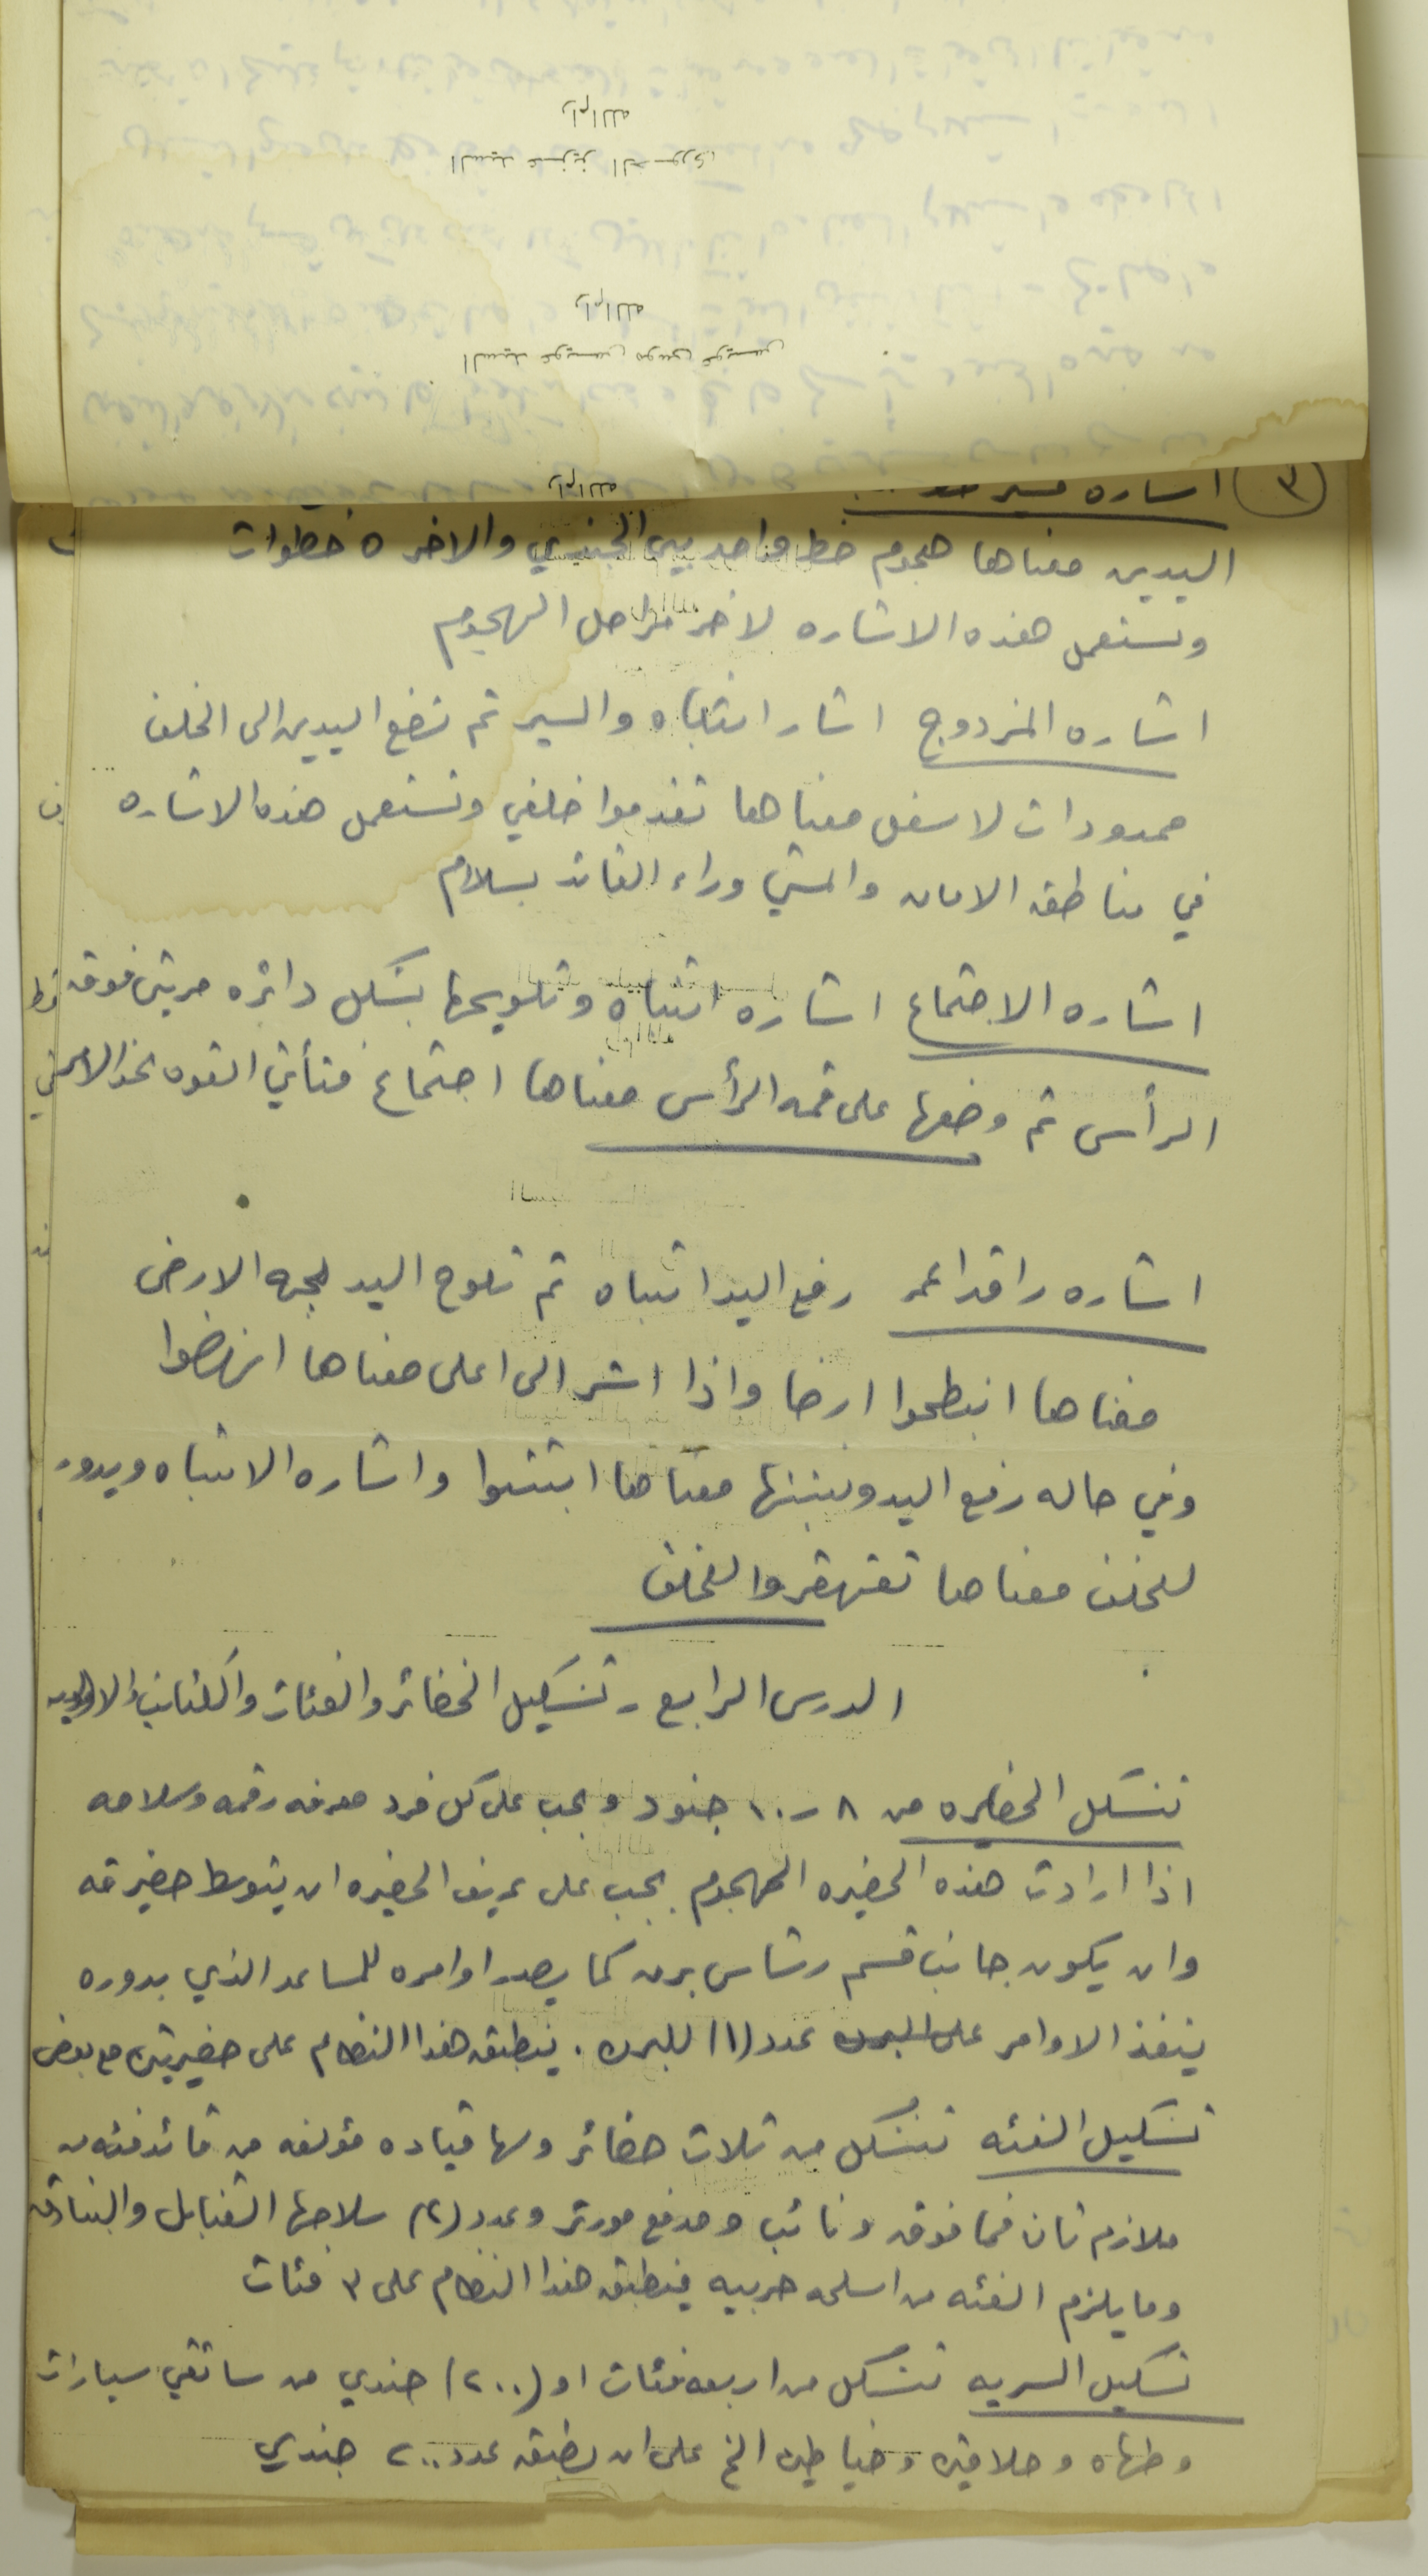 رام الله
السيد عزيز الخوري
رام الله
السيد عويس موسى عويس
رام الله
٣ اشاره
اليدين معناها هجوم خط واحد بين الجندي والاخر ٥ خطوات
وتستعمل هذه الاشاره لاخر مراحل الهجوم
اشاره المزدوج اشار انتباه والسير ثم تضع اليدين الى الخلف
ممدودات لاسفل معناها تقدموا خلفي وتستعمل هذه الاشاره
في مناطق الامان والمشي وراء القائد بسلام
اشاره الاجتماع اشاره انتباه وتلويحها بشكل دائره مرتين فوق
الرأس ثم وضعها على قمه الرأس معناها اجتماع فتأتي القوه
اشاره راقدا رفع اليد انتباه ثم تلوح اليد لجهه الارض
معناها انبطحوا ارضا واذا اشر الى اعلى معناها انهضوا
وفي حاله رفع اليد ويثبتها معناها اثبتوا واشاره الانتباه ويدور
للخلف معناها تقهقروا للخلف
الدرس الرابع - تشكيل الحضائر والفئات والكتائب
تتشكل الحضيره من ٨ - ١٠ جنود ويجب على كل فرد معرفه رقمه وسلاحه
اذا ارادت هذه الحضيره الهجوم يجب على عريف الحضيره ان يتوسط حضيرته
وان يكون بجانب قسم رشاش برن كما يصدر اوامره للمساعد الذي بدوره
ينفذ الاوامر على البرن عدد (١) للبرن . ينطبق هذا النظام على حضيرتين مع بعض
تشكيل الفئه تتشكل من ثلاث حضائر ولها قياده مؤلفه من قائد فئه من
ملازم ثان فما فوق ونائب ومدفع مورتر وعدد (٢) سلاحها القنابل والبنادق
وما يلزم الفئه من اسلحه حربيه فينطبق هذا النظام على ٣ فئات
تشكيل السريه تتشكل من اربعه فئات او (٢٠٠) جندي من سائقي سيارات
وطهاه وحلاقين وخياطين الخ على ان يطبق عدد ٢٠٠ جندي